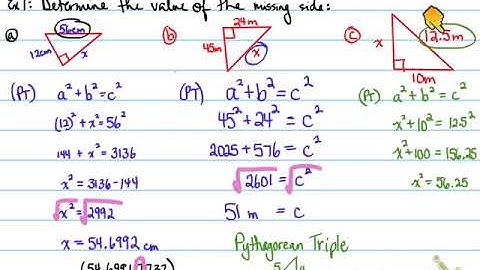 Ex1: Determine the value of the missing side:
(a) 56cm 12cm x
(b) 24m 45m x
(c) 12.5m x 10m
(PT) a² + b² = c²
(12)² + x² = 56²
144 + x² = 3136
x² = 3136 - 144
√x² = √2992
x = 54.6992 cm
(PT) a² + b² = c²
45² + 24² = c²
2025 + 576 = c²
√2601 = √c²
51 m = c
Pythagorean Triple
5
(PT) a² + b² = c²
x² + 10² = 12.5²
x² + 100 = 156.25
x² = 56.25